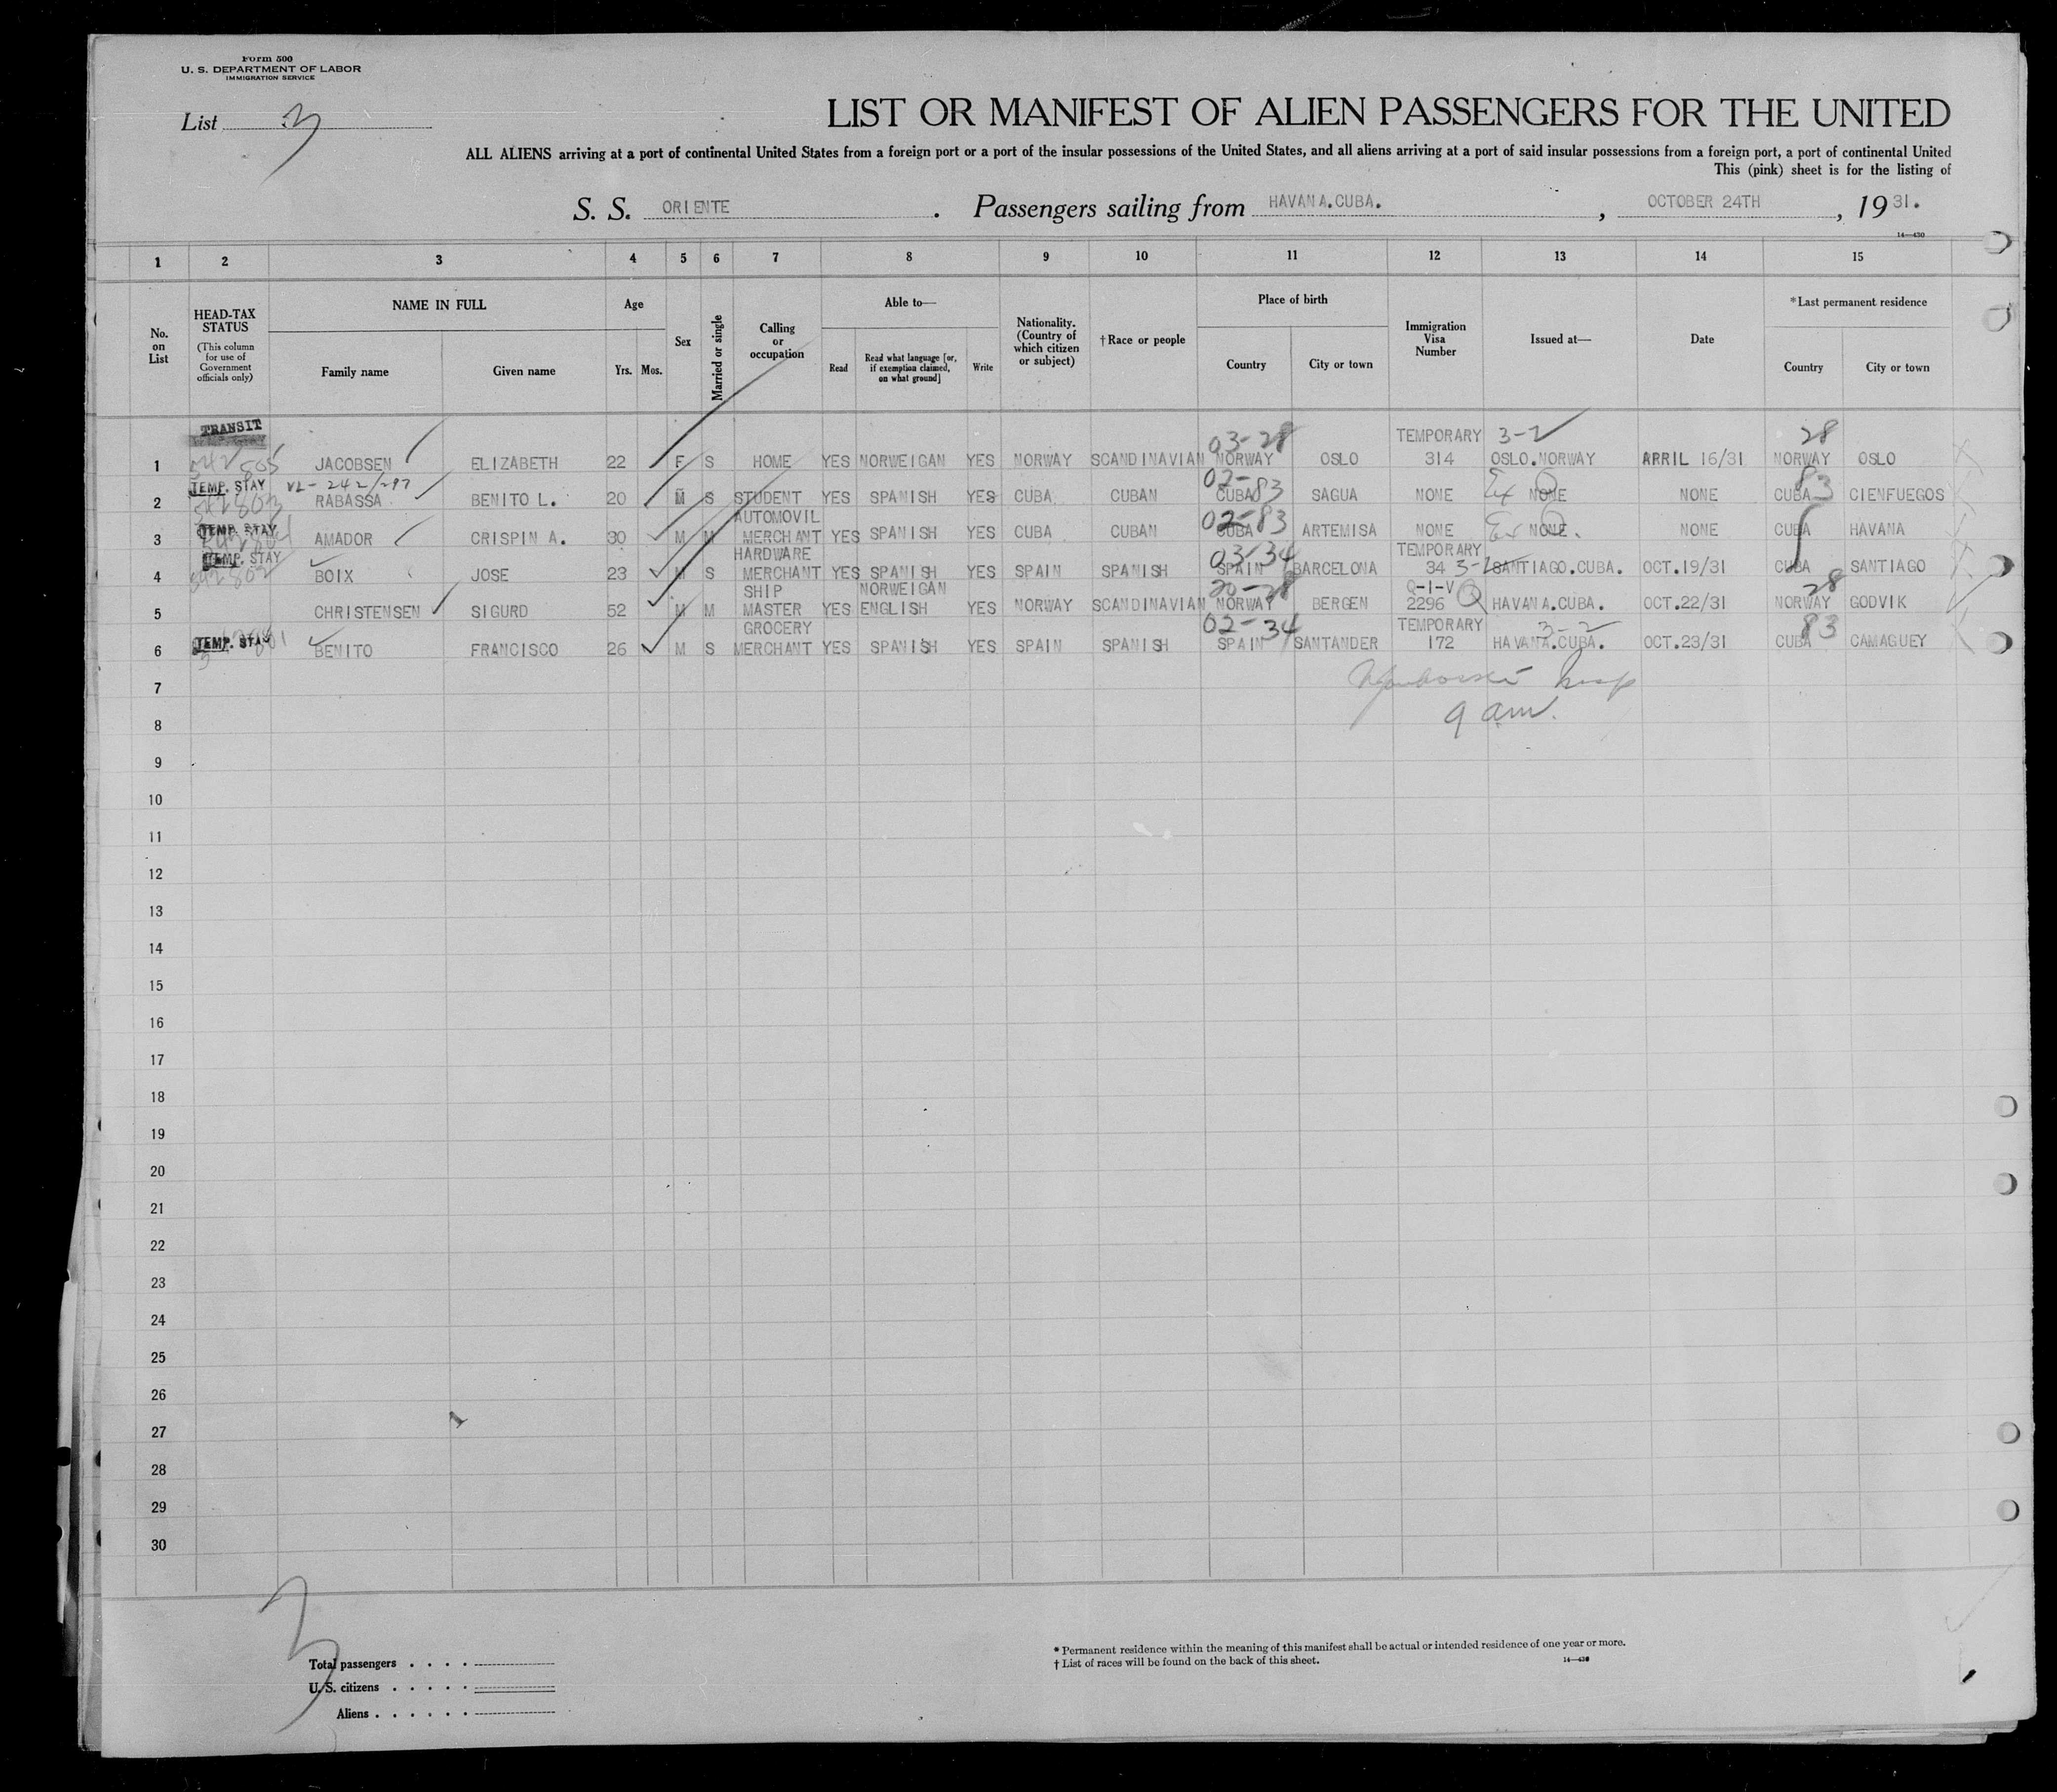 Form 500
U. S. DEPARTMENT OF LABOR
IMMIGRATION SERVICE
List 3
LIST OR MANIFEST OF ALIEN PASSENGERS FOR THE UNITED
ALL ALIENS arriving at a port of continental United States from a foreign port or a port of the insular possessions of the United States, and all aliens arriving at a port of said insular possessions from a foreign port, a port of continental United
This (pink) sheet is for the listing of
S. S. ORIENTE . Passengers sailing from HAVANA.CUBA. , OCTOBER 24TH , 19 31.
14—430
1 2 3 4 5 6 7 8 9 10 11 12 13 14 15
No. on List
HEAD-TAX STATUS (This column for use of Government officials only)
NAME IN FULL
Family name Given name
Age
Yrs. Mos.
Sex
Married or single
Calling or occupation
Able to—
Read
Read what language [or, if exemption claimed, on what ground]
Write
Nationality. (Country of which citizen or subject)
†Race or people
Place of birth
Country City or town
Immigration Visa Number
Issued at—
Date
*Last permanent residence
Country City or town
TRANSIT 03-28 TEMPORARY 3-2 28
1 JACOBSEN ELIZABETH 22 F S HOME YES NORWEIGAN YES NORWAY SCANDINAVIAN NORWAY OSLO 314 OSLO.NORWAY APRIL 16/31 NORWAY OSLO
TEMP. STAY VL-242/297 02-83 83
2 RABASSA BENITO L. 20 M S STUDENT YES SPANISH YES CUBA CUBAN CUBA SAGUA NONE Ex NONE NONE CUBA CIENFUEGOS
TEMP. STAY AUTOMOVIL 02-83
3 AMADOR CRISPIN A. 30 M M MERCHANT YES SPANISH YES CUBA CUBAN CUBA ARTEMISA NONE Ex NONE. NONE CUBA HAVANA
TEMP. STAY HARDWARE 03-34 TEMPORARY
4 BOIX JOSE 23 M S MERCHANT YES SPANISH YES SPAIN SPANISH SPAIN BARCELONA 34 SANTIAGO.CUBA. OCT.19/31 CUBA SANTIAGO
SHIP NORWEIGAN 20-28 Q-I-V 28
5 CHRISTENSEN SIGURD 52 M M MASTER YES ENGLISH YES NORWAY SCANDINAVIAN NORWAY BERGEN 2296 HAVANA.CUBA. OCT.22/31 NORWAY GODVIK
TEMP. STAY GROCERY 02-34 TEMPORARY 3-2 83
6 BENITO FRANCISCO 26 M S MERCHANT YES SPANISH YES SPAIN SPANISH SPAIN SANTANDER 172 HAVANA.CUBA. OCT.23/31 CUBA CAMAGUEY
7
9 am.
8
9
10
11
12
13
14
15
16
17
18
19
20
21
22
23
24
25
26
27
28
29
30
3
Total passengers . . . .
U. S. citizens . . . . .
Aliens . . . . . .
* Permanent residence within the meaning of this manifest shall be actual or intended residence of one year or more.
† List of races will be found on the back of this sheet. 14—430